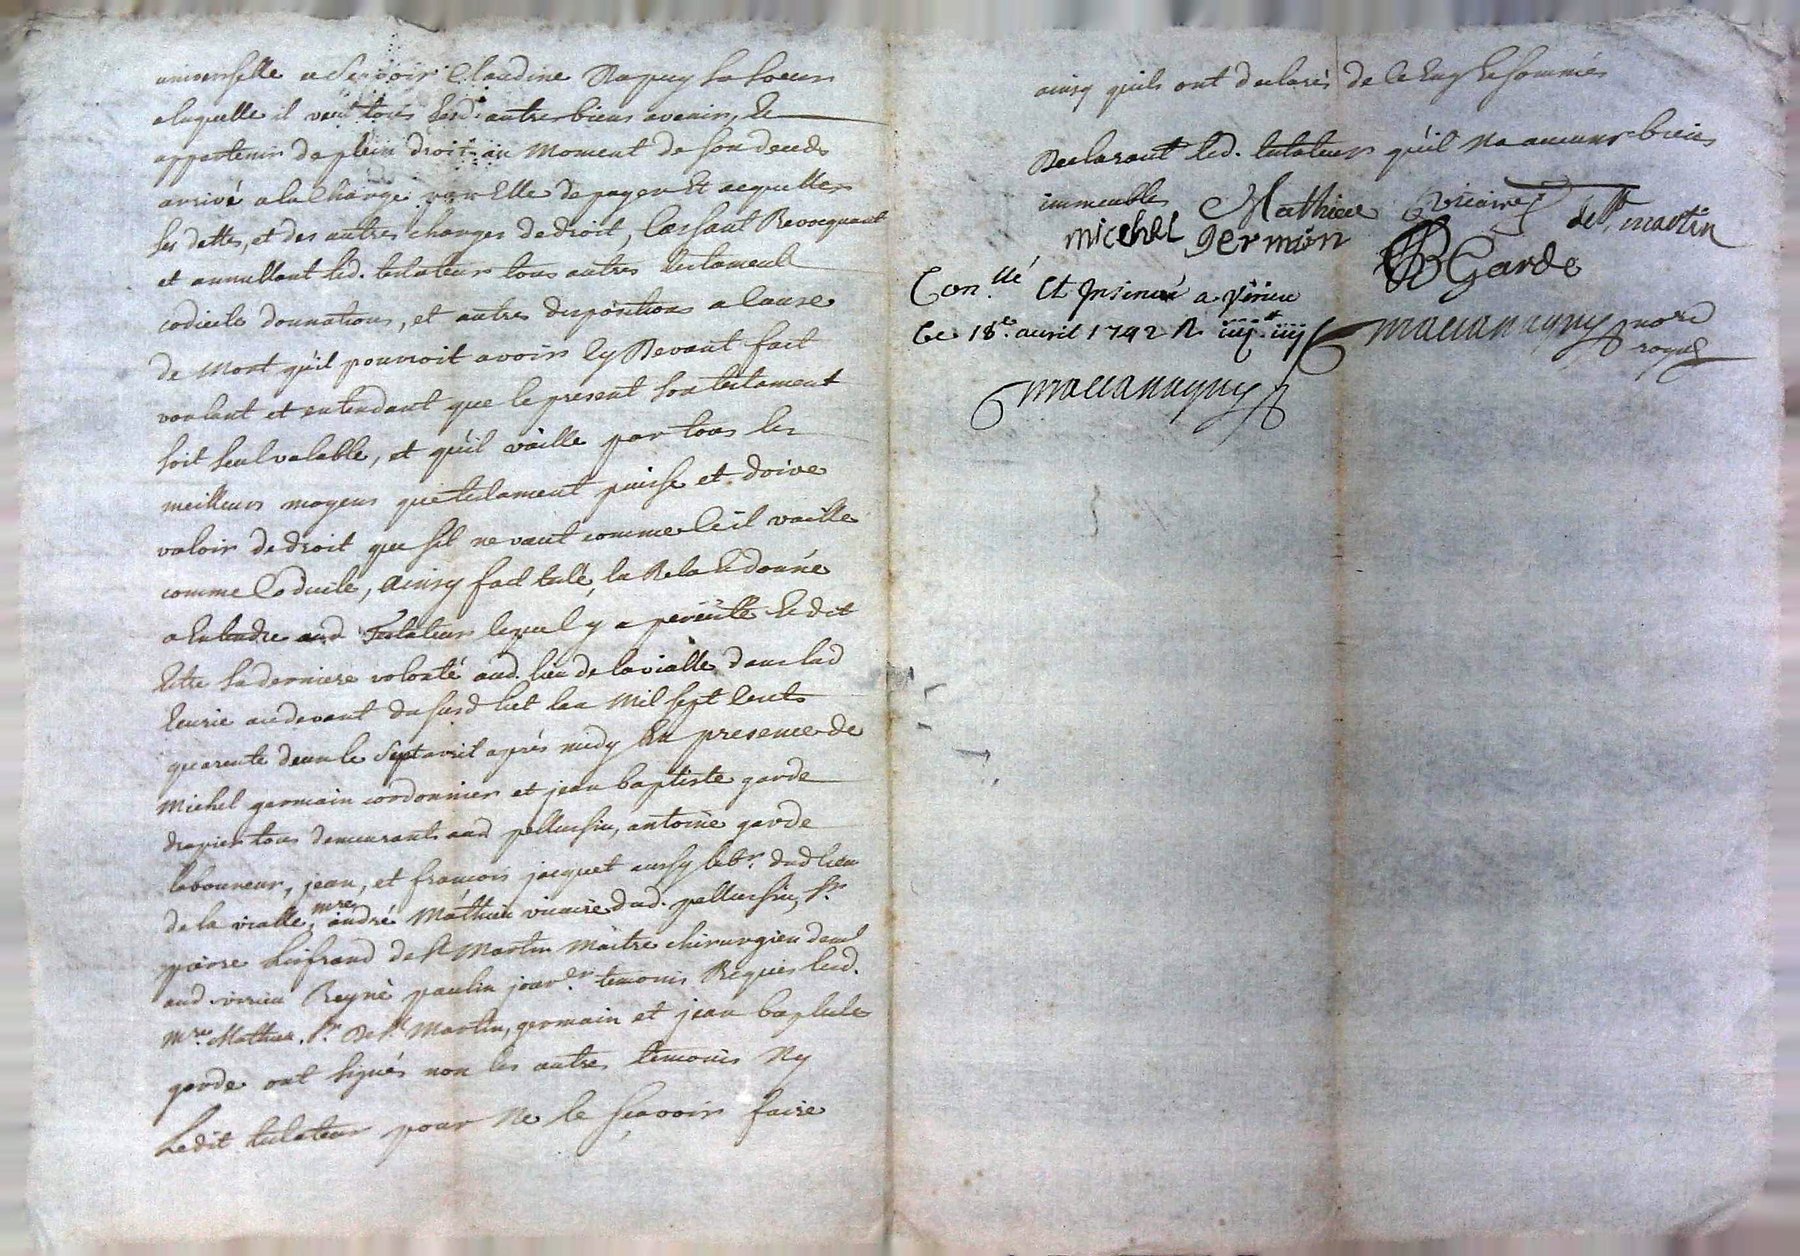 universelle a scavoir Claudine Rapuy sa soeur
a laquelle il veut tous sesd. autres biens avenir, le
appartenir de plein droit au moment de son deceds
arrivé a la Charge par Elle de payer Et acquitter
ses dettes, et des autres charges de droit, Cassant Revocquant
et annullant led. testateur tous autres testaments
codicile donnations, et autres dispositions a cause
de mort qu'il pourroit avoir Cy Devant fait
voulant et entendant que le present son testament
soit seul valable, et qu'il vaille par tous les
meilleurs moyens que testament puisse et doive
valoir de droit que s'il ne vaut comme tel il vaille
comme Codicile, ainsy fait leu, la Relu donné
a Entendre aud Testateur lequel y a percisté Et dit
Estre sa derniere volonté aud. lieu de la vialle dans lad
Ecurie au devant du susd lict l'an mil sept Cents
quarente deux le Sept avril après midy En presence de
Michel germain cordonnier et jean baptiste garde
drapier tous demeurants aud pellussin, antoine garde
laboureur, jean, et francois jacquet aussy labr. dud lieu
de la vialle, mre andré Mathieu vicaire dud. pellussin, Sr.
pierre Lisfrand de St Martin maitre chirurgien demt
aud. virieu Reyné paulin jourer. temoins Requis lesd.
mre. Mathieu. Sr. de St. Martin, germain et jean baptiste
garde ont signés non les autres temoins Ny
Ledit testateur pour Ne le scavoir faire
ainsy quils ont declarés de ce Enq Et sommés
Declarant led. testateur qu'il Na aucuns biens
immeubles
Mathieu vicaire de St. martin
micehel germain JB Garde
Con.llé Et Insinué a virieu
Ce 18e. avril 1742 R iiij# iiij s